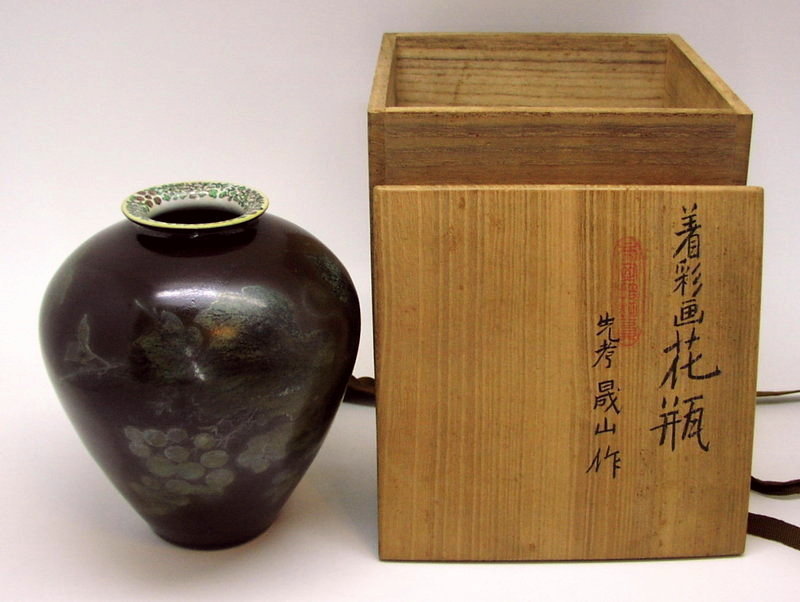 着彩画花瓶
先考晟山作